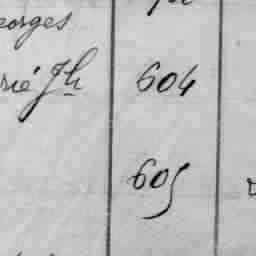 eorges
rié Jh 604
605